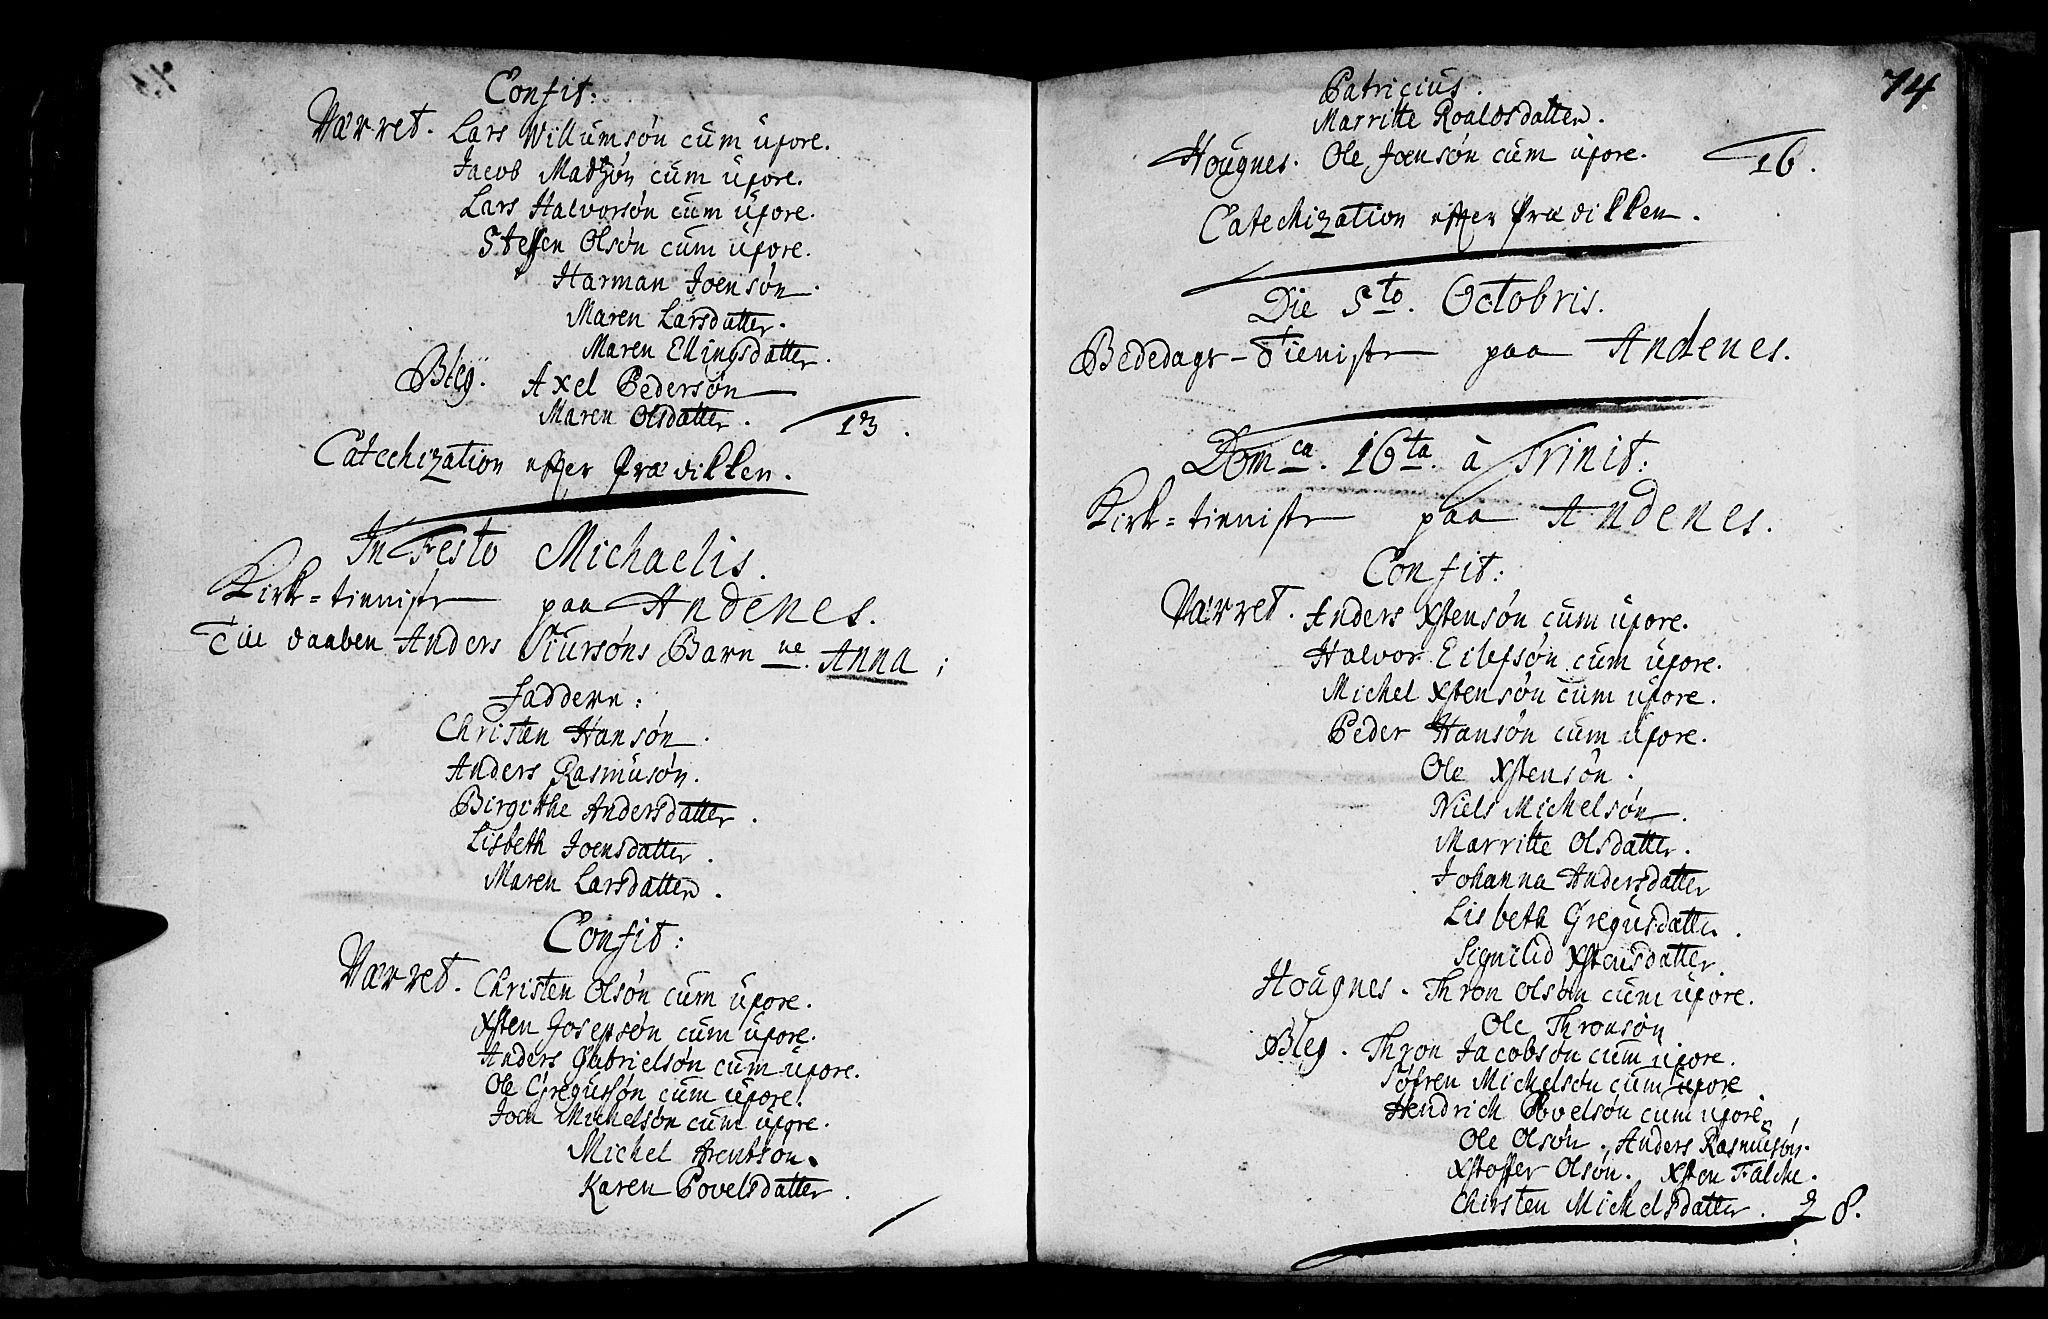 Confit:
Værret. Lars Willumsøn cum uxore.
Jacob Madtzøn cum uxore.
Lars Halvorsøn cum uxore.
Steffen Olsøn cum uxore.
Harman Joensøn.
Maren Larsdatter.
Maren Ellingsdatter.
Bleg. Axel Pedersøn
Maren Olsdatter. 13.
Catechization efter Prædikken.
In Festo Michaelis.
Kirk=tienniste paa Andenes.
Till daaben Anders Siursøns Barn ne. Anna;
Faddere:
Christen Hansøn.
Anders Rasmusøn.
Birgitthe Andersdatter.
Lisbeth Joensdatter.
Maren Larsdatter.
Confit:
Værret. Christen Olsøn cum uxore.
Xsten Josepsøn cum uxore.
Anders Gabrielsøn cum uxore.
Ole Gregussøn cum uxore.
Joen Michelsøn cum uxore.
Michel Arentsøn.
Karen Povelsdatter.
74
Patricius.
Marritte Roaldsdatter.
Hougnes. Ole Joensøn cum uxore. 16.
Catechization efter Prædikken.
Die 5to. Octobris.
Bededags-Tieniste paa Andenes.
Domca. 16ta. à Trinit:
Kirk=tienniste paa Andenes.
Confit:
Værret. Anders Xstensøn cum uxore.
Halvor Eilefsøn cum uxore.
Michel Xstensøn cum uxore.
Peder Hansøn cum uxore.
Ole Xstensøn.
Niels Michelsøn.
Marritte Olsdatter.
Johanna Andersdatter
Lisbeth Gregusdatter.
Signild Xstensdatter.
Hougnes. Thron Olsøn cum uxore.
Ole Thronsøn
Bleg. Thron Jacobsøn cum uxore.
Søfren Michelsøn cum uxore
Hendrich Povelsøn cum uxore.
Ole Olsøn. Anders Rasmusøn.
Xstoffer Olsøn. Xsten Falche.
Chirsten Michelsdatter. 28.